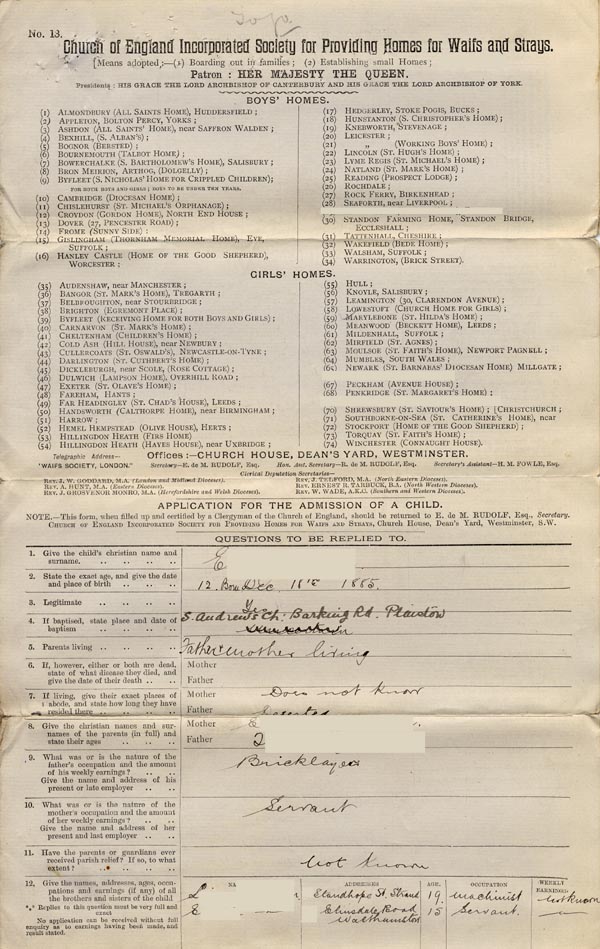 No. 13.
Church of England Incorporated Society for Providing Homes for Waifs and Strays.
[Means adopted;—(1) Boarding out in families; (2) Establishing small Homes;
Patron : HER MAJESTY THE QUEEN.
Presidents: HIS GRACE THE LORD ARCHBISHOP OF CANTERBURY AND HIS GRACE THE LORD ARCHBISHOP OF YORK.
BOYS' HOMES.
(1) ALMONDBURY (ALL SAINTS HOME), HUDDERSFIELD;
(2) APPLETON, BOLTON PERCY, YORKS;
(3) ASHDON (ALL SAINTS' HOME), NEAR SAFFRON WALDEN;
(4) BEXHILL, (S. ALBAN'S);
(5) BOGNOR (BERSTED);
(6) BOURNEMOUTH (TALBOT HOME);
(7) BOWERCHALKE (S. BARTHOLOMEW'S HOME), SALISBURY;
(8) BRON MEIRION, ARTHOG, (DOLGELLY);
(9) BYFLEET (S. NICHOLAS' HOME FOR CRIPPLED CHILDREN);
FOR BOTH BOYS AND GIRLS; BOYS TO BE UNDER TEN YEARS.
(10) CAMBRIDGE (DIOCESAN HOME);
(11) CHISLEHURST (ST. MICHAEL'S ORPHANAGE);
(12) CROYDON (GORDON HOME), NORTH END HOUSE;
(13) DOVER (27, PENCESTER ROAD);
(14) FROME (SUNNY SIDE);
(15) GISLINGHAM (THORNHAM MEMORIAL HOME), EYE, SUFFOLK;
(16) HANLEY CASTLE (HOME OF THE GOOD SHEPHERD), WORCESTER;
(17) HEDGERLEY, STOKE POGIS, BUCKS;
(18) HUNSTANTON (S. CHRISTOPHER'S HOME);
(19) KNEBWORTH, STEVENAGE;
(20) LEICESTER;
(21) ,, (WORKING BOYS' HOME);
(22) LINCOLN (ST. HUGH'S HOME);
(23) LYME REGIS (ST. MICHAEL'S HOME);
(24) NATLAND (ST. MARK'S HOME);
(25) READING (PROSPECT LODGE);
(26) ROCHDALE;
(27) ROCK FERRY, BIRKENHEAD;
(28) SEAFORTH, near LIVERPOOL;
(30) STANDON FARMING HOME, STANDON BRIDGE, ECCLESHALL;
(31) TATTENHALL, CHESHIRE;
(32) WAKEFIELD (BEDE HOME);
(33) WALSHAM, SUFFOLK;
(34) WARRINGTON, (BRICK STREET).
GIRLS' HOMES.
(35) AUDENSHAW, near MANCHESTER;
(36) BANGOR (ST. MARK'S HOME), TREGARTH;
(37) BELBROUGHTON, near STOURBRIDGE;
(38) BRIGHTON (EGREMONT PLACE);
(39) BYFLEET (RECEIVING HOME FOR BOTH BOYS AND GIRLS);
(40) CARNARVON (ST. MARK'S HOME);
(41) CHELTENHAM (CHILDREN'S HOME);
(42) COLD ASH (HILL HOUSE), near NEWBURY;
(43) CULLERCOATS (ST. OSWALD'S), NEWCASTLE-ON-TYNE;
(44) DARLINGTON (ST. CUTHBERT'S HOME);
(45) DICKLEBURGH, near SCOLE, (ROSE COTTAGE);
(46) DULWICH (LAMPSON HOME), OVERHILL ROAD;
(47) EXETER (ST. OLAVE'S HOME);
(48) FAREHAM, HANTS;
(49) FAR HEADINGLEY (ST. CHAD'S HOUSE), LEEDS;
(50) HANDSWORTH (CALTHORPE HOME), near BIRMINGHAM;
(51) HARROW;
(52) HEMEL HEMPSTEAD (OLIVE HOUSE), HERTS;
(53) HILLINGDON HEATH (FIRS HOME)
(54) HILLINGDON HEATH (HAYES HOUSE), near UXBRIDGE;
(55) HULL;
(56) KNOYLE, SALISBURY;
(57) LEAMINGTON (30, CLARENDON AVENUE);
(58) LOWESTOFT (CHURCH HOME FOR GIRLS);
(59) MARYLEBONE (ST. HILDA'S HOME);
(60) MEANWOOD (BECKETT HOME), LEEDS;
(61) MILDENHALL, SUFFOLK;
(62) MIRFIELD (ST. AGNES);
(63) MOULSOE (ST. FAITH'S HOME), NEWPORT PAGNELL;
(64) MUMBLES, SOUTH WALES;
(65) NEWARK (ST. BARNABAS' DIOCESAN HOME) MILLGATE;
(67) PECKHAM (AVENUE HOUSE);
(68) PENKRIDGE (ST. MARGARET'S HOME);
(70) SHREWSBURY (ST. SAVIOUR'S HOME); [CHRISTCHURCH;
(71) SOUTHBORNE-ON-SEA (ST. CATHERINE'S HOME), near
(72) STOCKPORT (HOME OF THE GOOD SHEPHERD);
(73) TORQUAY (ST. FAITH'S HOME);
(74) WINCHESTER (CONNAUGHT HOUSE).
Telegraphic Address— "WAIFS SOCIETY, LONDON."
Offices:—CHURCH HOUSE, DEAN'S YARD, WESTMINSTER.
Secretary—E. de M. RUDOLF, Esq. Hon. Asst. Secretary—R. de M. RUDOLF, Esq. Secretary's Assistant—H. M. FOWLE, Esq.
Clerical Deputation Secretaries—
REV. J. W. GODDARD, M.A. (London and Midland Dioceses).
REV. A. HUNT, M.A. (Eastern Dioceses).
REV. J. GROSVENOR MONRO, M.A. (Herefordshire and Welsh Dioceses).
REV. J. TELFORD, M.A. (North Eastern Dioceses).
REV. ERNEST R. TARBUCK, B.A. (North Western Dioceses)
REV. W. WADE, A.K.C. (Southern and Western Dioceses).
APPLICATION FOR THE ADMISSION OF A CHILD.
NOTE.—This form, when filled up and certified by a Clergyman of the Church of England, should be returned to E. de M. RUDOLF, Esq., Secretary.
CHURCH OF ENGLAND INCORPORATED SOCIETY FOR PROVIDING HOMES FOR WAIFS AND STRAYS, Church House, Dean's Yard, Westminster, S.W.
QUESTIONS TO BE REPLIED TO.
1. Give the child's christian name and surname. .. .. .. ..
E
2. State the exact age, and give the date and place of birth .. .. ..
12. Born Dec. 18th 1885.
3. Legitimate .. .. .. ..
Yes
4. If baptised, state place and date of baptism .. .. .. ..
S. Andrew's Ch: Barking Rd. Plaistow
5. Parents living .. .. .. ..
Father & mother living
6. If, however, either or both are dead, state of what disease they died, and give the date of their death .. ..
Mother
Father
7. If living, give their exact places of abode, and state how long they have resided there .. .. ..
Mother Does not know
Father Deserted
8. Give the christian names and surnames of the parents (in full) and state their ages .. .. ..
Mother E
Father
9. What was or is the nature of the father's occupation and the amount of his weekly earnings? .. ..
Give the name and address of his present or late employer .. ..
Bricklayer
10. What was or is the nature of the mother's occupation and the amount of her weekly earnings? .. ..
Give the name and address of her present and last employer .. ..
Servant
11. Have the parents or guardians ever received parish relief? If so, to what extent? .. .. .. ..
Not known
12. Give the names, addresses, ages, occupations and earnings (if any) of all the brothers and sisters of the child
*** Replies to this question must be very full and exact
No application can be received without full enquiry as to earnings having been made, and result stated.
NA ADDRESSES AGE. OCCUPATION WEEKLY EARNINGS.
L Standhope St. Strand 19. Machinist Not known
E Elmsdale Road Walthamstow 15 Servant —